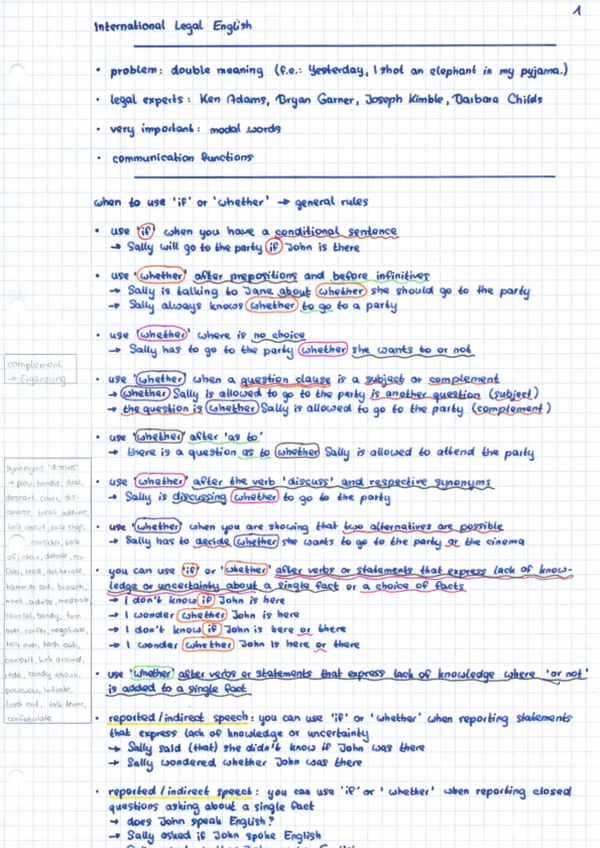 1
International Legal English
• problem: double meaning (f.e.: Yesterday, I shot an elephant in my pyjama.)
• legal experts: Ken Adams, Bryan Garner, Joseph Kimble, Barbara Childs
• very important: modal words
• communication functions
when to use 'if' or 'whether' → general rules
• use 'if' when you have a conditional sentence
→ Sally will go to the party if John is there
• use 'whether' after prepositions and before infinitives
→ Sally is talking to Jane about whether she should go to the party
→ Sally always knows whether to go to a party
• use 'whether' where is no choice
→ Sally has to go to the party whether she wants to or not
complement
→ Ergänzung
• use 'whether' when a question clause is a subject or complement
→ whether Sally is allowed to go to the party is another question (subject)
→ the question is whether Sally is allowed to go to the party (complement)
• use 'whether' after 'as to'
→ there is a question as to whether Sally is allowed to attend the party
synonyms 'discuss'
talk about, talk shop,
consider, talk
hammer out, broach,
moot, advise, moderate,
over, confer, negotiate,
talk over, hash out,
consult, kick around,
confabulate
• use 'whether' after the verb 'discuss' and respective synonyms
→ Sally is discussing whether to go to the party
• use 'whether' when you are showing that two alternatives are possible
→ Sally has to decide whether she wants to go to the party or the cinema
• you can use 'if' or 'whether' after verbs or statements that express lack of know-
ledge or uncertainty about a single fact or a choice of facts
→ I don't know if John is here
→ I wonder whether John is here
→ I don't know if John is here or there
→ I wonder whether John is here or there
• use 'whether' after verbs or statements that express lack of knowledge where 'or not'
is added to a single fact
• reported/indirect speech: you can use 'if' or 'whether' when reporting statements
that express lack of knowledge or uncertainty
→ Sally said (that) she didn't know if John was there
→ Sally wondered whether John was there
• reported/indirect speech: you can use 'if' or 'whether' when reporting closed
questions asking about a single fact
→ does John speak English?
→ Sally asked if John spoke English